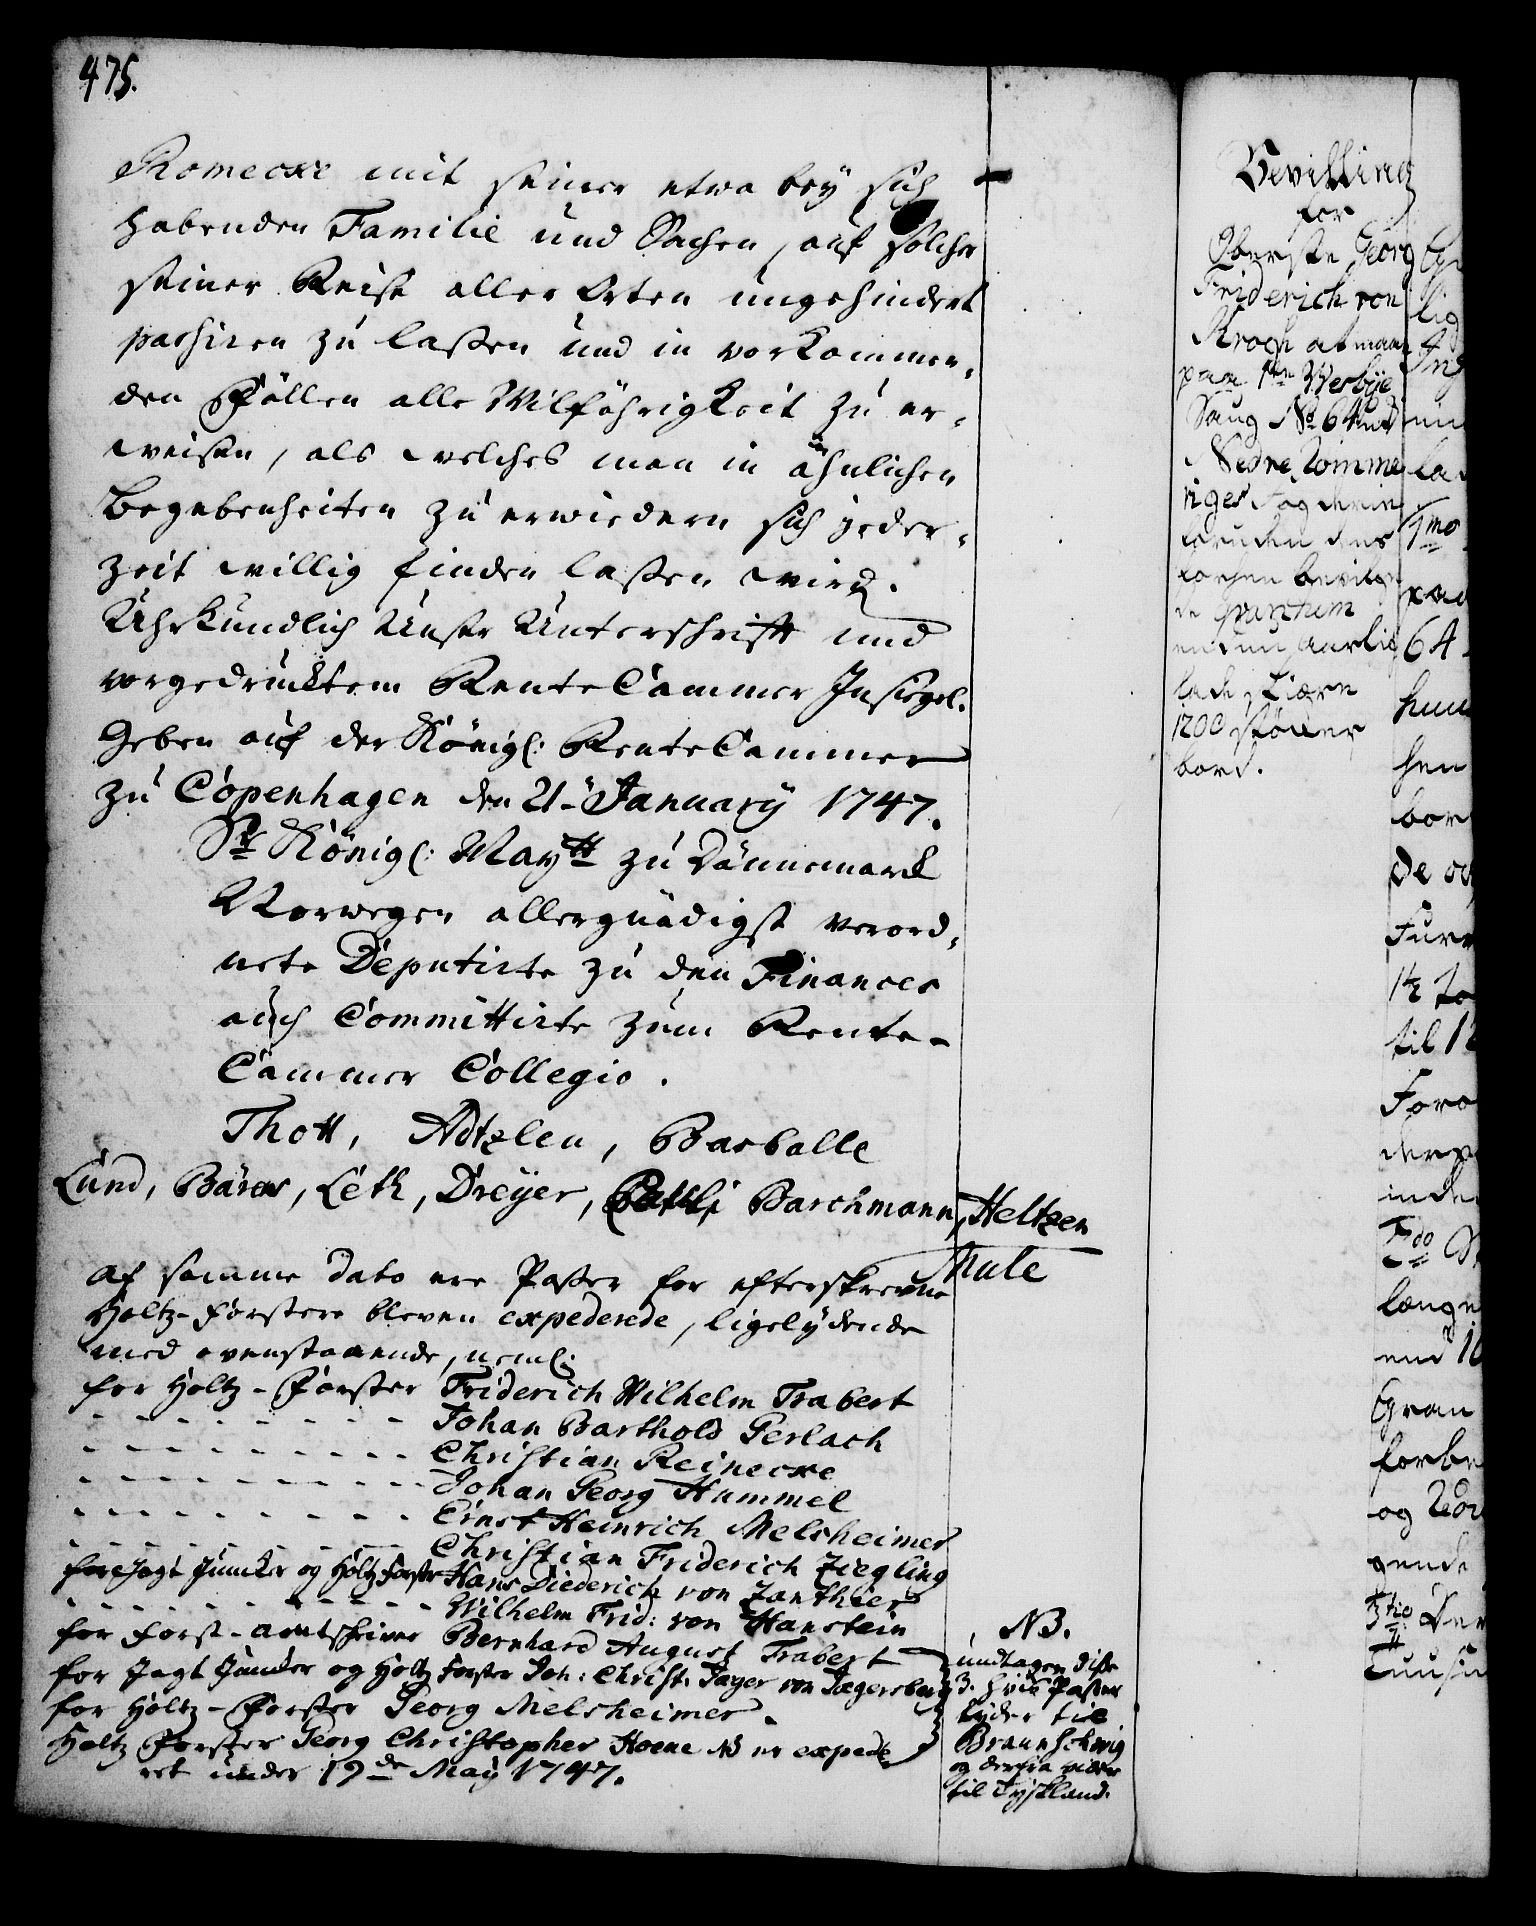 475.
Romecke mit seiner etwa bey sich
habenden Familie und Sachen, auf solcher
seiner Reise aller Orten ungehindert
passiren zu lassen und in vorkommen,
den Fällen alle Wilfährigkeit zu er,
weisen, als welches man in ähnlichen
Begebenheiten zu erwiedern sich jeder,
zeit willig finden lassen wird.
Uhrkundlich Unser Unterschrifft und
vorgedrucktem RenteCammer Insiegel.
Geben auf der Königl: RenteCammer
zu Copenhagen den 21. January 1747.
Sr Königl: Maytt zu Dännemarck
Norwegen allergnädigst verord,
nete Deputirte zu den Finances
auch Committirte zum Rente-
Cammer Collegio.
Thott, Adtzlen, Barballe
Lund, Bärer, Leth, Dreyer, Barchmann, Heltzen
Mule
Af samme dato ere Passer for efterskrevne
Holtz-Förstere bleven expederede, ligelydende
med ovenstaaende, neml:
for Holtz-Förster Friderich Wilhelm Trabert
- - - - - - - - - Johan Barthold Gerlach
- - - - - - - - - Christian Reinecke
- - - - - - - - - Johan Georg Hummel
- - - - - - - - - Ernst Heinrich Melsheimer
- - - - - - - - - Christian Friderich Ziegling
for Jagt Juncker og Holtz Förster Hans Diederich von Zanthier
- - - - - - - - - Wilhelm Frid: von Hanstein
for Forst-Amtskriver Bernhard August Trabert
for Jagt Juncker og Holtz Förster Joh: Christ: Jager von Jægersberg
for Holtz-Förster Georg Melsheimer.
Holtz Förster Georg Christopher Hoene NB er expede
ret under 19de May 1747.
NB.
undtagen disse
3. hvis Passer
lyder til
Braunschwig
og derfra vider
til Tyskland.
Bevilling
for
Oberste Georg
Friderich von
Krogh at maae
paa Werbye
Saug No 64 ud
Nedre Romme
riges Fogderie
foruden dend
forhen bevilge
de Qvantum
endnu aarlig
lade skiære
1200 stöcker
bord.
lig
Ind
1mo
64
huu
hen
bor
De
1½ to
til 12
Foro
inde
2do
længe
end 10
Gran
forbe
og
gende
3tio